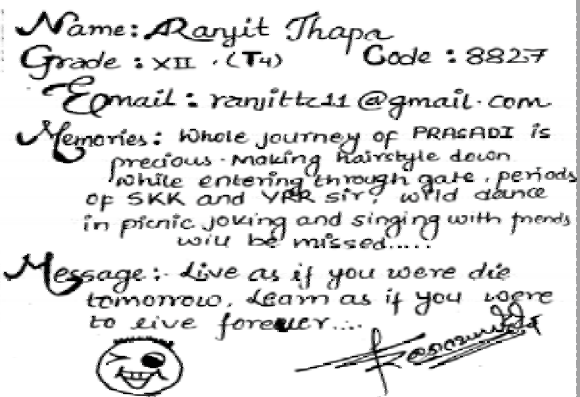 Name: Ranjit Thapa
Grade : XII . (T4) Code : 8827
Email : ranjittz11@gmail.com
Memories: Whole journey of PRASADI is
precious. Making hairstyle down
while entering through gate, periods
of SKK and YRR sir, wild dance
in picnic joking and singing with friends
will be missed.....
Message:- Live as if you were die
tomorrow. Learn as if you were
to live forever....